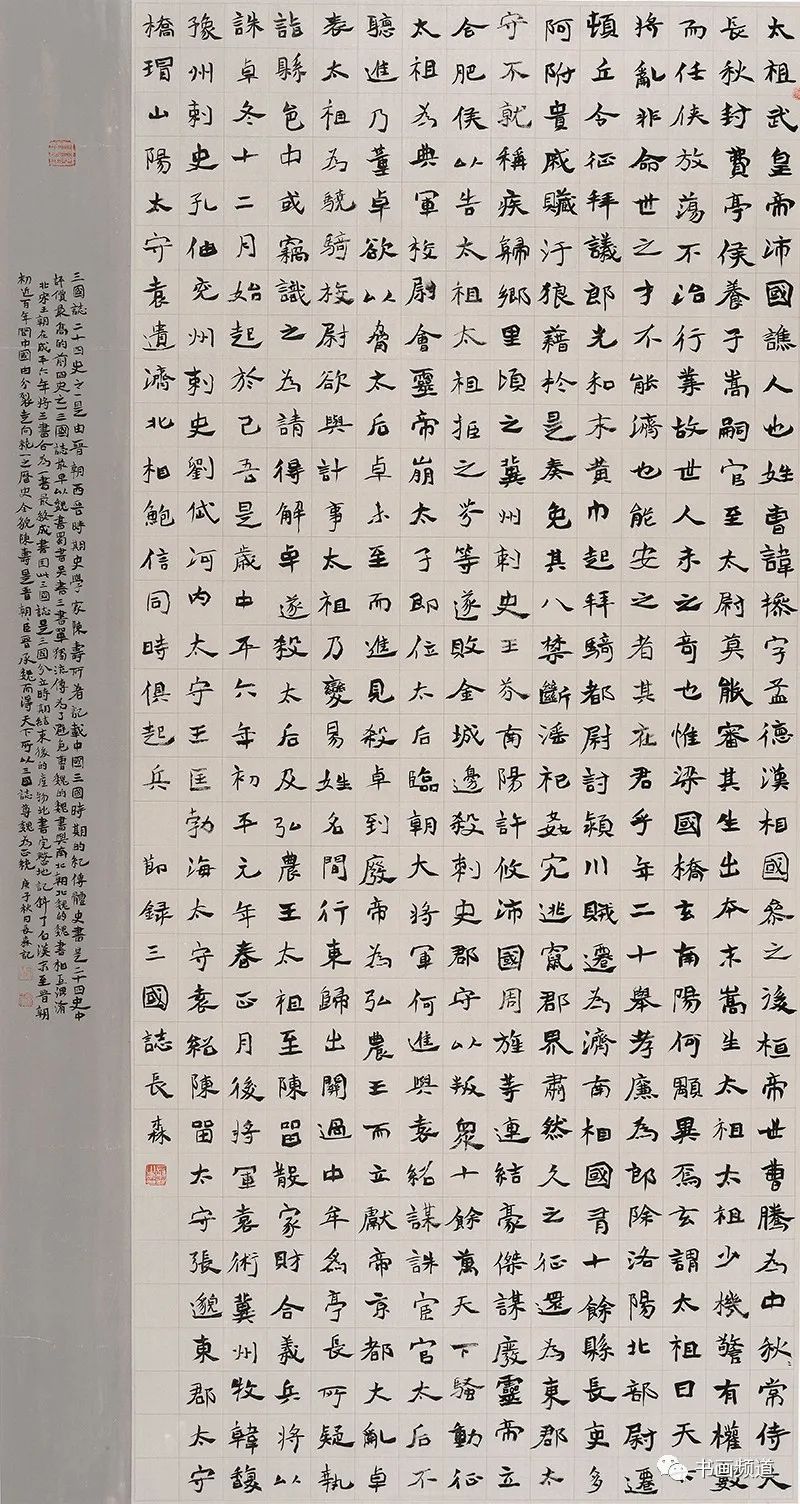 太祖武皇帝沛國譙人也姓曹諱操字孟德漢相國參之後桓帝世曹騰為中秋常侍大
長秋封費亭侯養子嵩嗣官至太尉莫能審其生出本末嵩生太祖太祖少機警有權數
而任俠放蕩不治行業故世人未之奇也惟梁國橋玄南陽何顒異焉玄謂太祖曰天下
將亂非命世之才不能濟也能安之者其在君乎年二十舉孝廉為郎除洛陽北部尉遷
頓丘令征拜議郎光和末黃巾起拜騎都尉討潁川賊遷為濟南相國有十餘縣長吏多
阿附貴戚贓汙狼藉於是奏免其八禁斷淫祀姦宄逃竄郡界肅然久之征還為東郡太
守不就稱疾歸鄉里頃之冀州刺史王芬南陽許攸沛國周旌等連結豪傑謀廢靈帝立
合肥侯以告太祖太祖拒之芬等遂敗金城邊殺刺史郡守以叛眾十餘萬天下騷動征
太祖為典軍校尉會靈帝崩太子即位太后臨朝大將軍何進與袁紹謀誅宦官太后不
聽進乃董卓欲以脅太后卓未至而進見殺卓到廢帝為弘農王而立獻帝京都大亂卓
表太祖為驍騎校尉欲與計事太祖乃變易姓名間行東歸出關過中牟為亭長所疑執
詣縣邑中或竊識之為請得解卓遂殺太后及弘農王太祖至陳留散家財合義兵將以
誅卓冬十二月始起於己吾是歲中平六年初平元年春正月後將軍袁術冀州牧韓馥
豫州刺史孔伷兗州刺史劉岱河內太守王匡勃海太守袁紹陳留太守張邈東郡太守
橋瑁山陽太守袁遺濟北相鮑信同時俱起兵 節錄三國誌長森
三國誌二十四史之一是由晉朝西晉時期史學家陳壽所著記載中國三國時期的紀傳體史書是二十四史中
評價最高的前四史之一三國誌最早以魏書蜀書吳書三書單獨流傳為了避免曹魏的魏書與南北朝北魏的魏書相互混淆
北宋王朝在咸平六年將三書合為一書最終成書因此三國誌是三國分立時期結束後的產物此書完整地記錄了自漢末至晉朝
初近百年間中國由分裂走向統一之歷史全貌陳壽是晉朝臣晉承魏而得天下所以三國誌尊魏為正統 庚子秋日長森記
书画频道